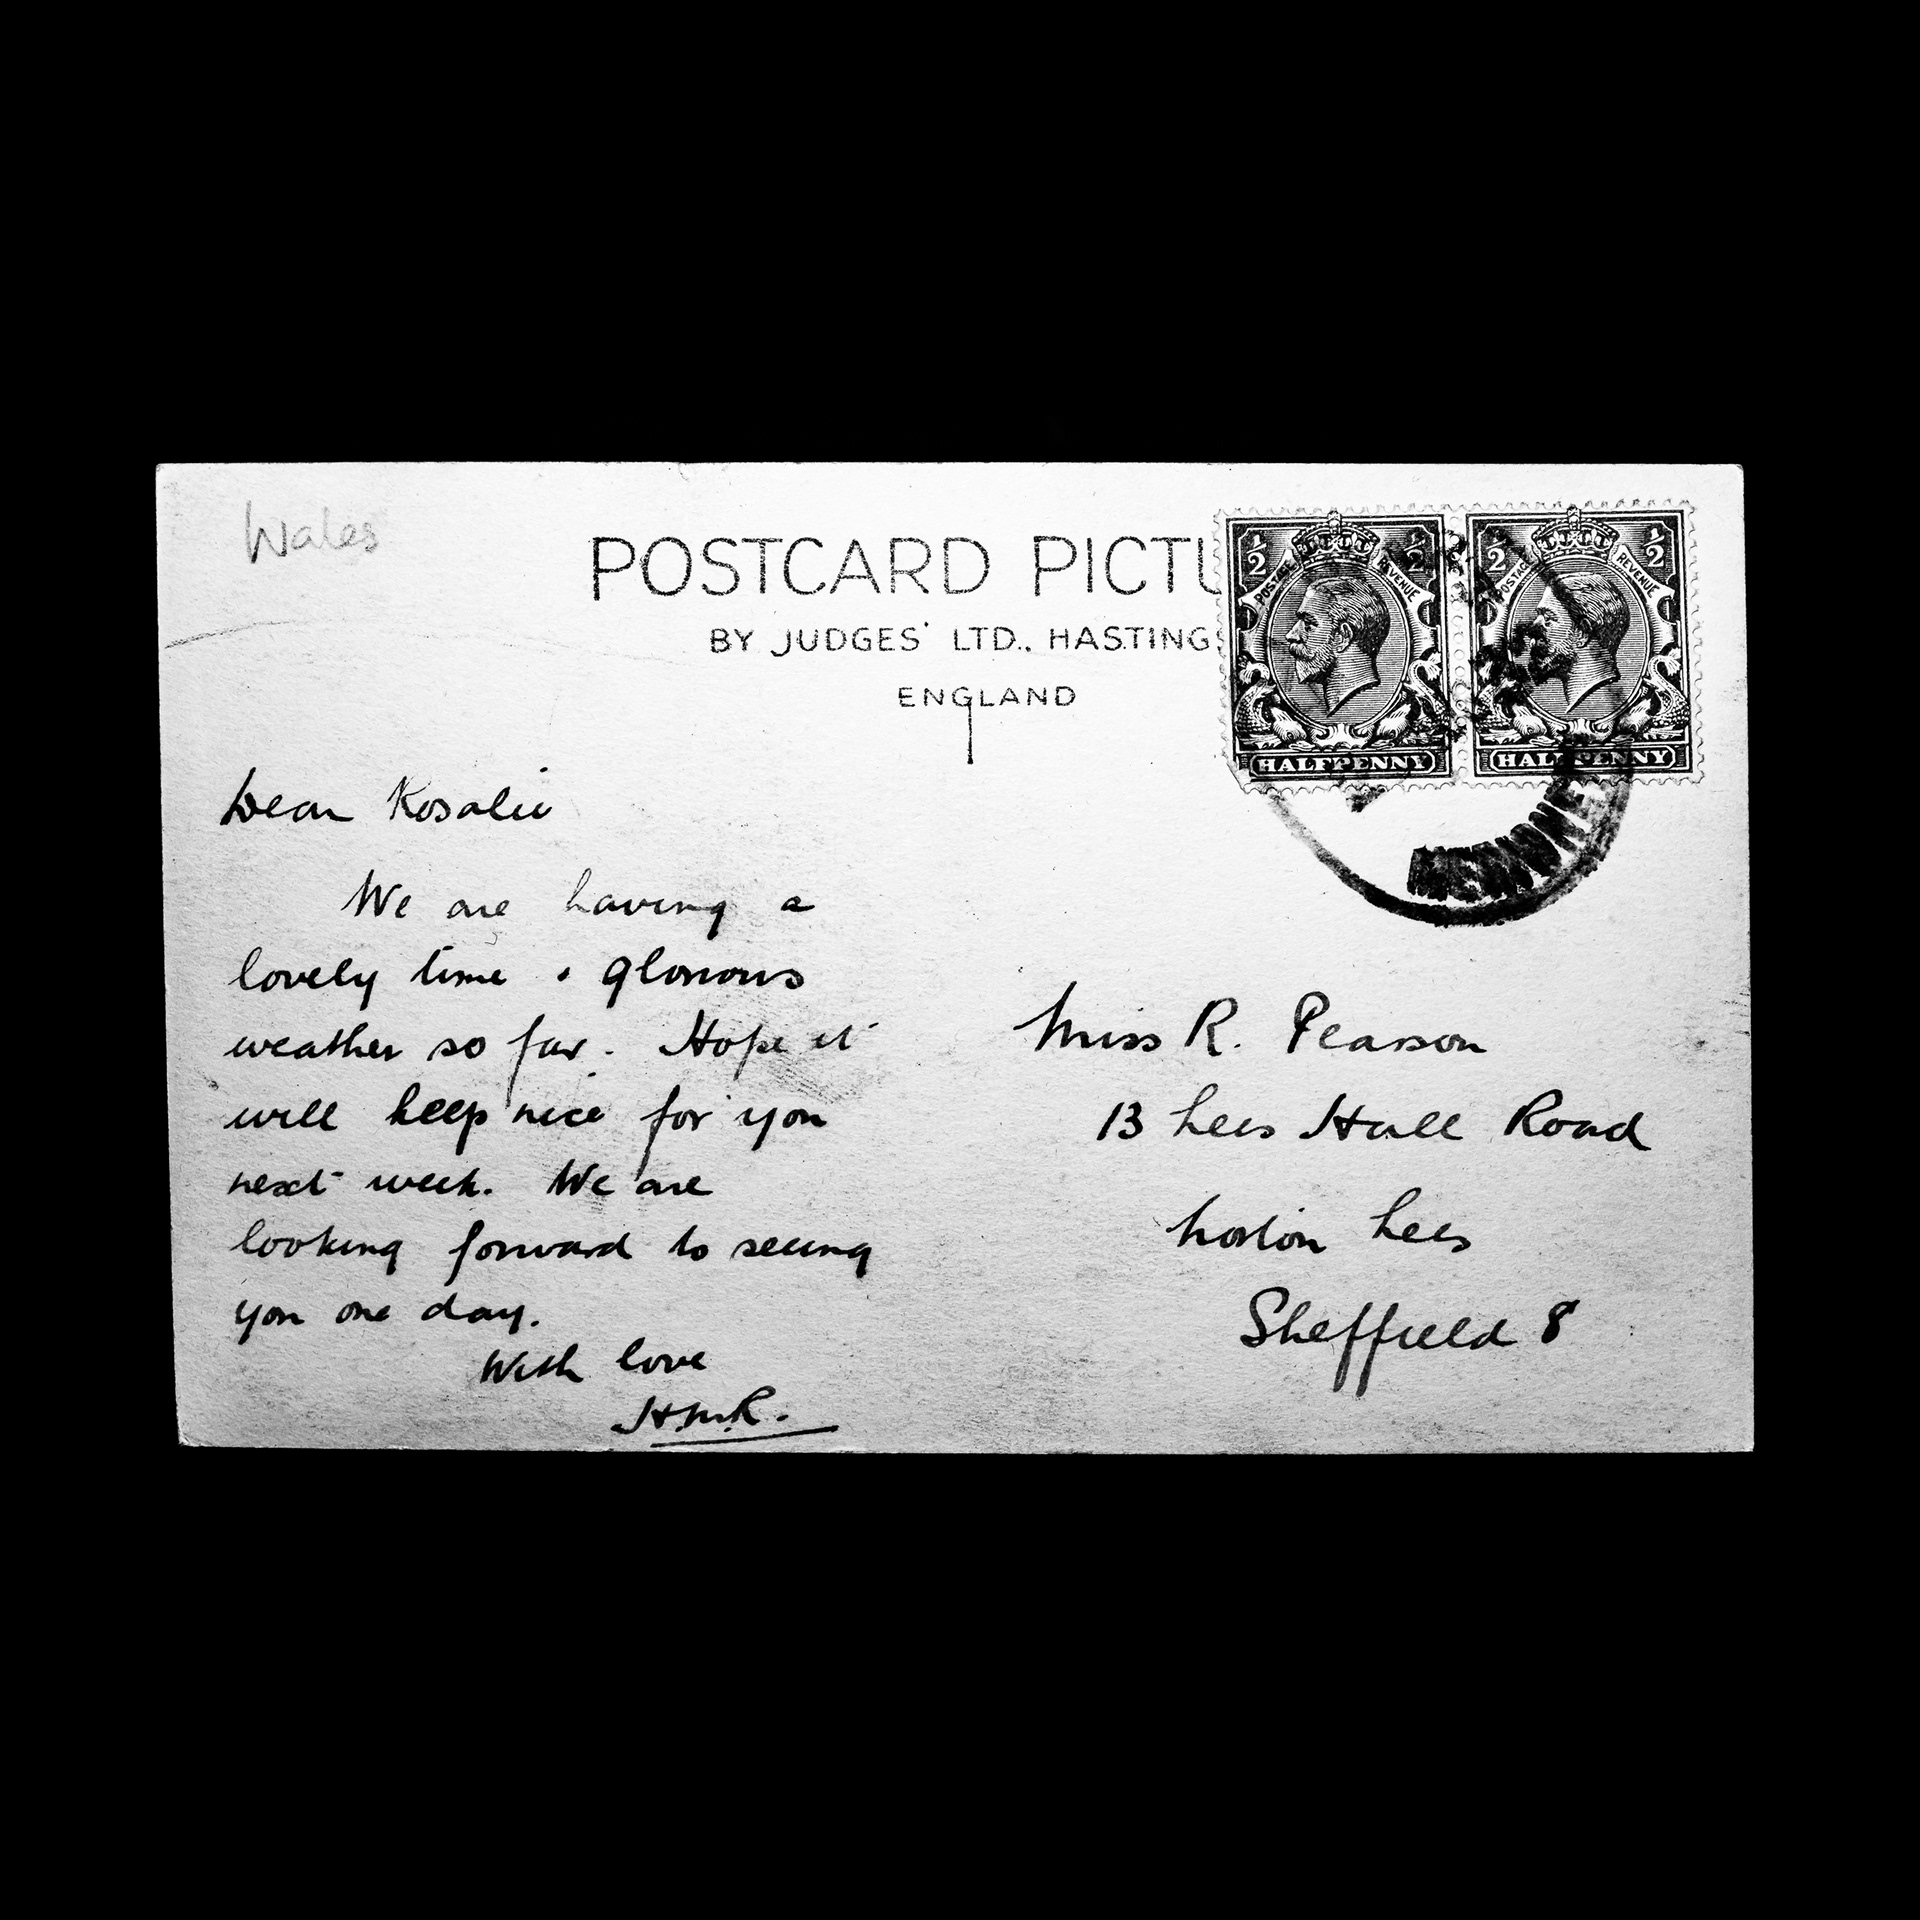 Wales
POSTCARD PICTU
BY JUDGES' LTD., HASTINGS
ENGLAND
½ ½
POSTAGE REVENUE
HALFPENNY
½ ½
POSTAGE REVENUE
HALFPENNY
Dear Rosalie
We are having a
lovely time & glorious
weather so far. Hope it
will keep nice for you
next week. We are
looking forward to seeing
you one day.
With love
H.M.R.
Miss R. Pearson
13 Lees Hall Road
Norton Lees
Sheffield 8